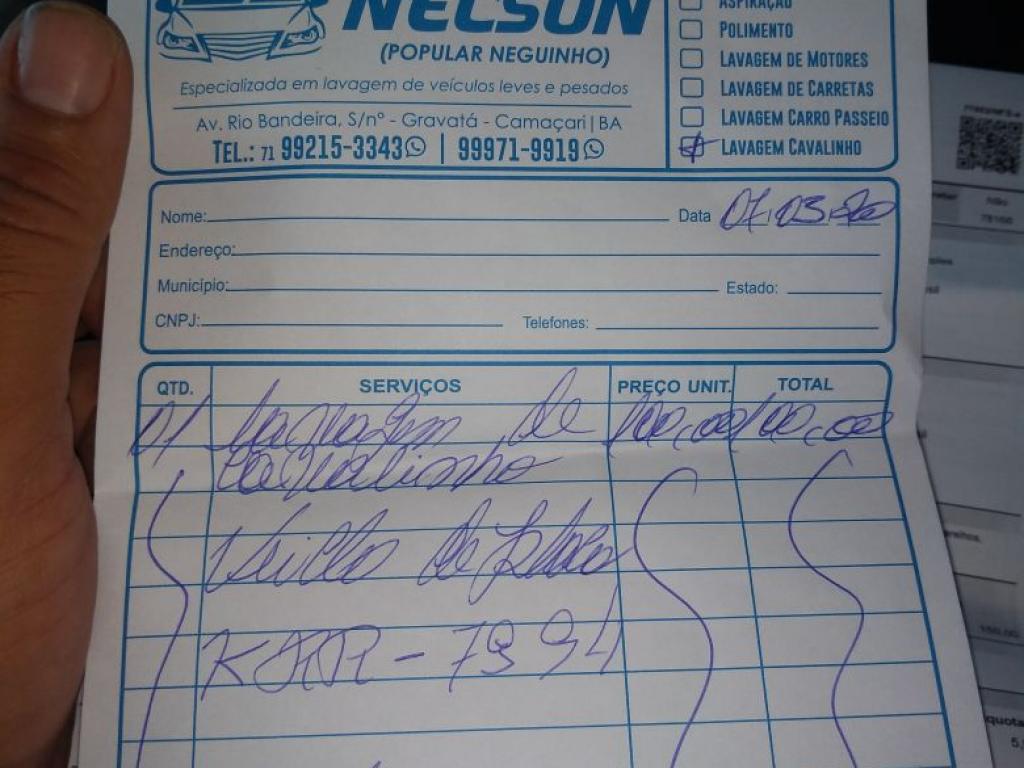 NECSON
(POPULAR NEGUINHO)
Especializada em lavagem de veículos leves e pesados
Av. Rio Bandeira, S/nº - Gravatá - Camaçari | BA
TEL.: 71 99215-3343 | 99971-9919
ASPIRAÇÃO
POLIMENTO
LAVAGEM DE MOTORES
LAVAGEM DE CARRETAS
LAVAGEM CARRO PASSEIO
LAVAGEM CAVALINHO
Nome: Data 07.03.20
Endereço:
Município: Estado:
CNPJ: Telefones:
QTD. SERVIÇOS PREÇO UNIT. TOTAL
01 Lavagem de 100,00 100,00
Cavalinho
de Placa
7994